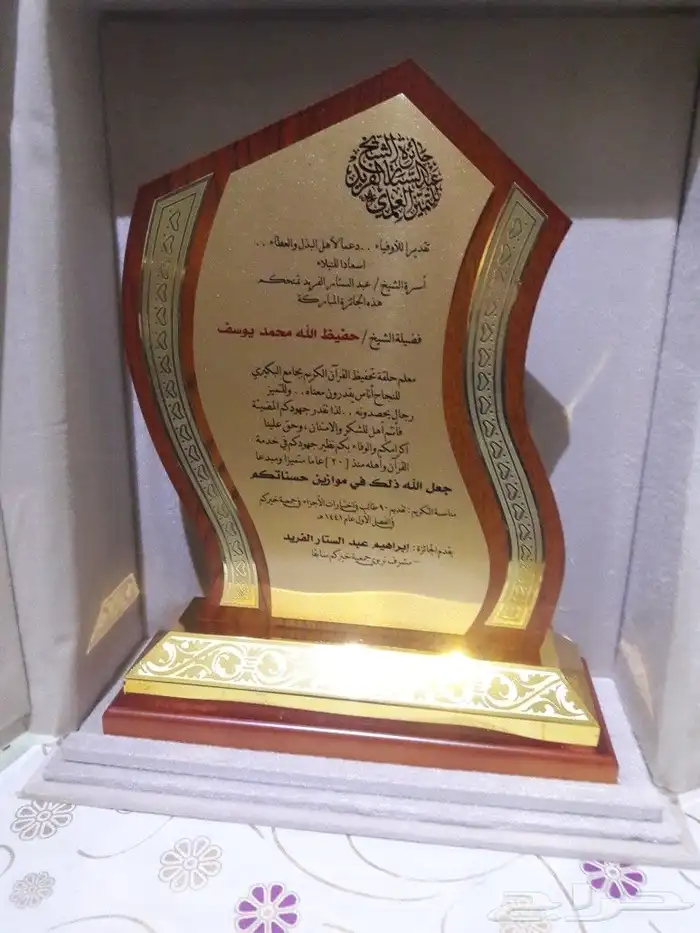 جائزة الشيخ
عبدالستار الفريد
للتميز العلمي
تقديرا للأوفياء .. دعما لأهل البذل والعطاء ..
اسعادا للنبلاء
أسرة الشيخ / عبد الستار الفريد تمنحكم
هذه الجائزة المباركة
فضيلة الشيخ / حفيظ الله محمد يوسف
معلم حلقة تحفيظ القرآن الكريم بجامع البكيري
للنجاح أناس يقدرون معناه .. وللتميز
رجال يحصدونه .. لذا نقدر جهودكم المضيئة
فأنتم أهل للشكر والامتنان ، وحق علينا
اكرامكم والوفاء بكم نظير جهودكم في خدمة
القرآن وأهله منذ [ ٢٠ ] عاما متميزا ومبدعا
جعل الله ذلك في موازين حسناتكم
مناسبة التكريم : تقديم ٩٠ طالب في اختبارات الأجزاء في جمعية خيركم
في الفصل الأول عام ١٤٤١هـ
يقدم الجائزة : إبراهيم عبد الستار الفريد
- مشرف تربوي جمعية خيركم سابقا
حراج